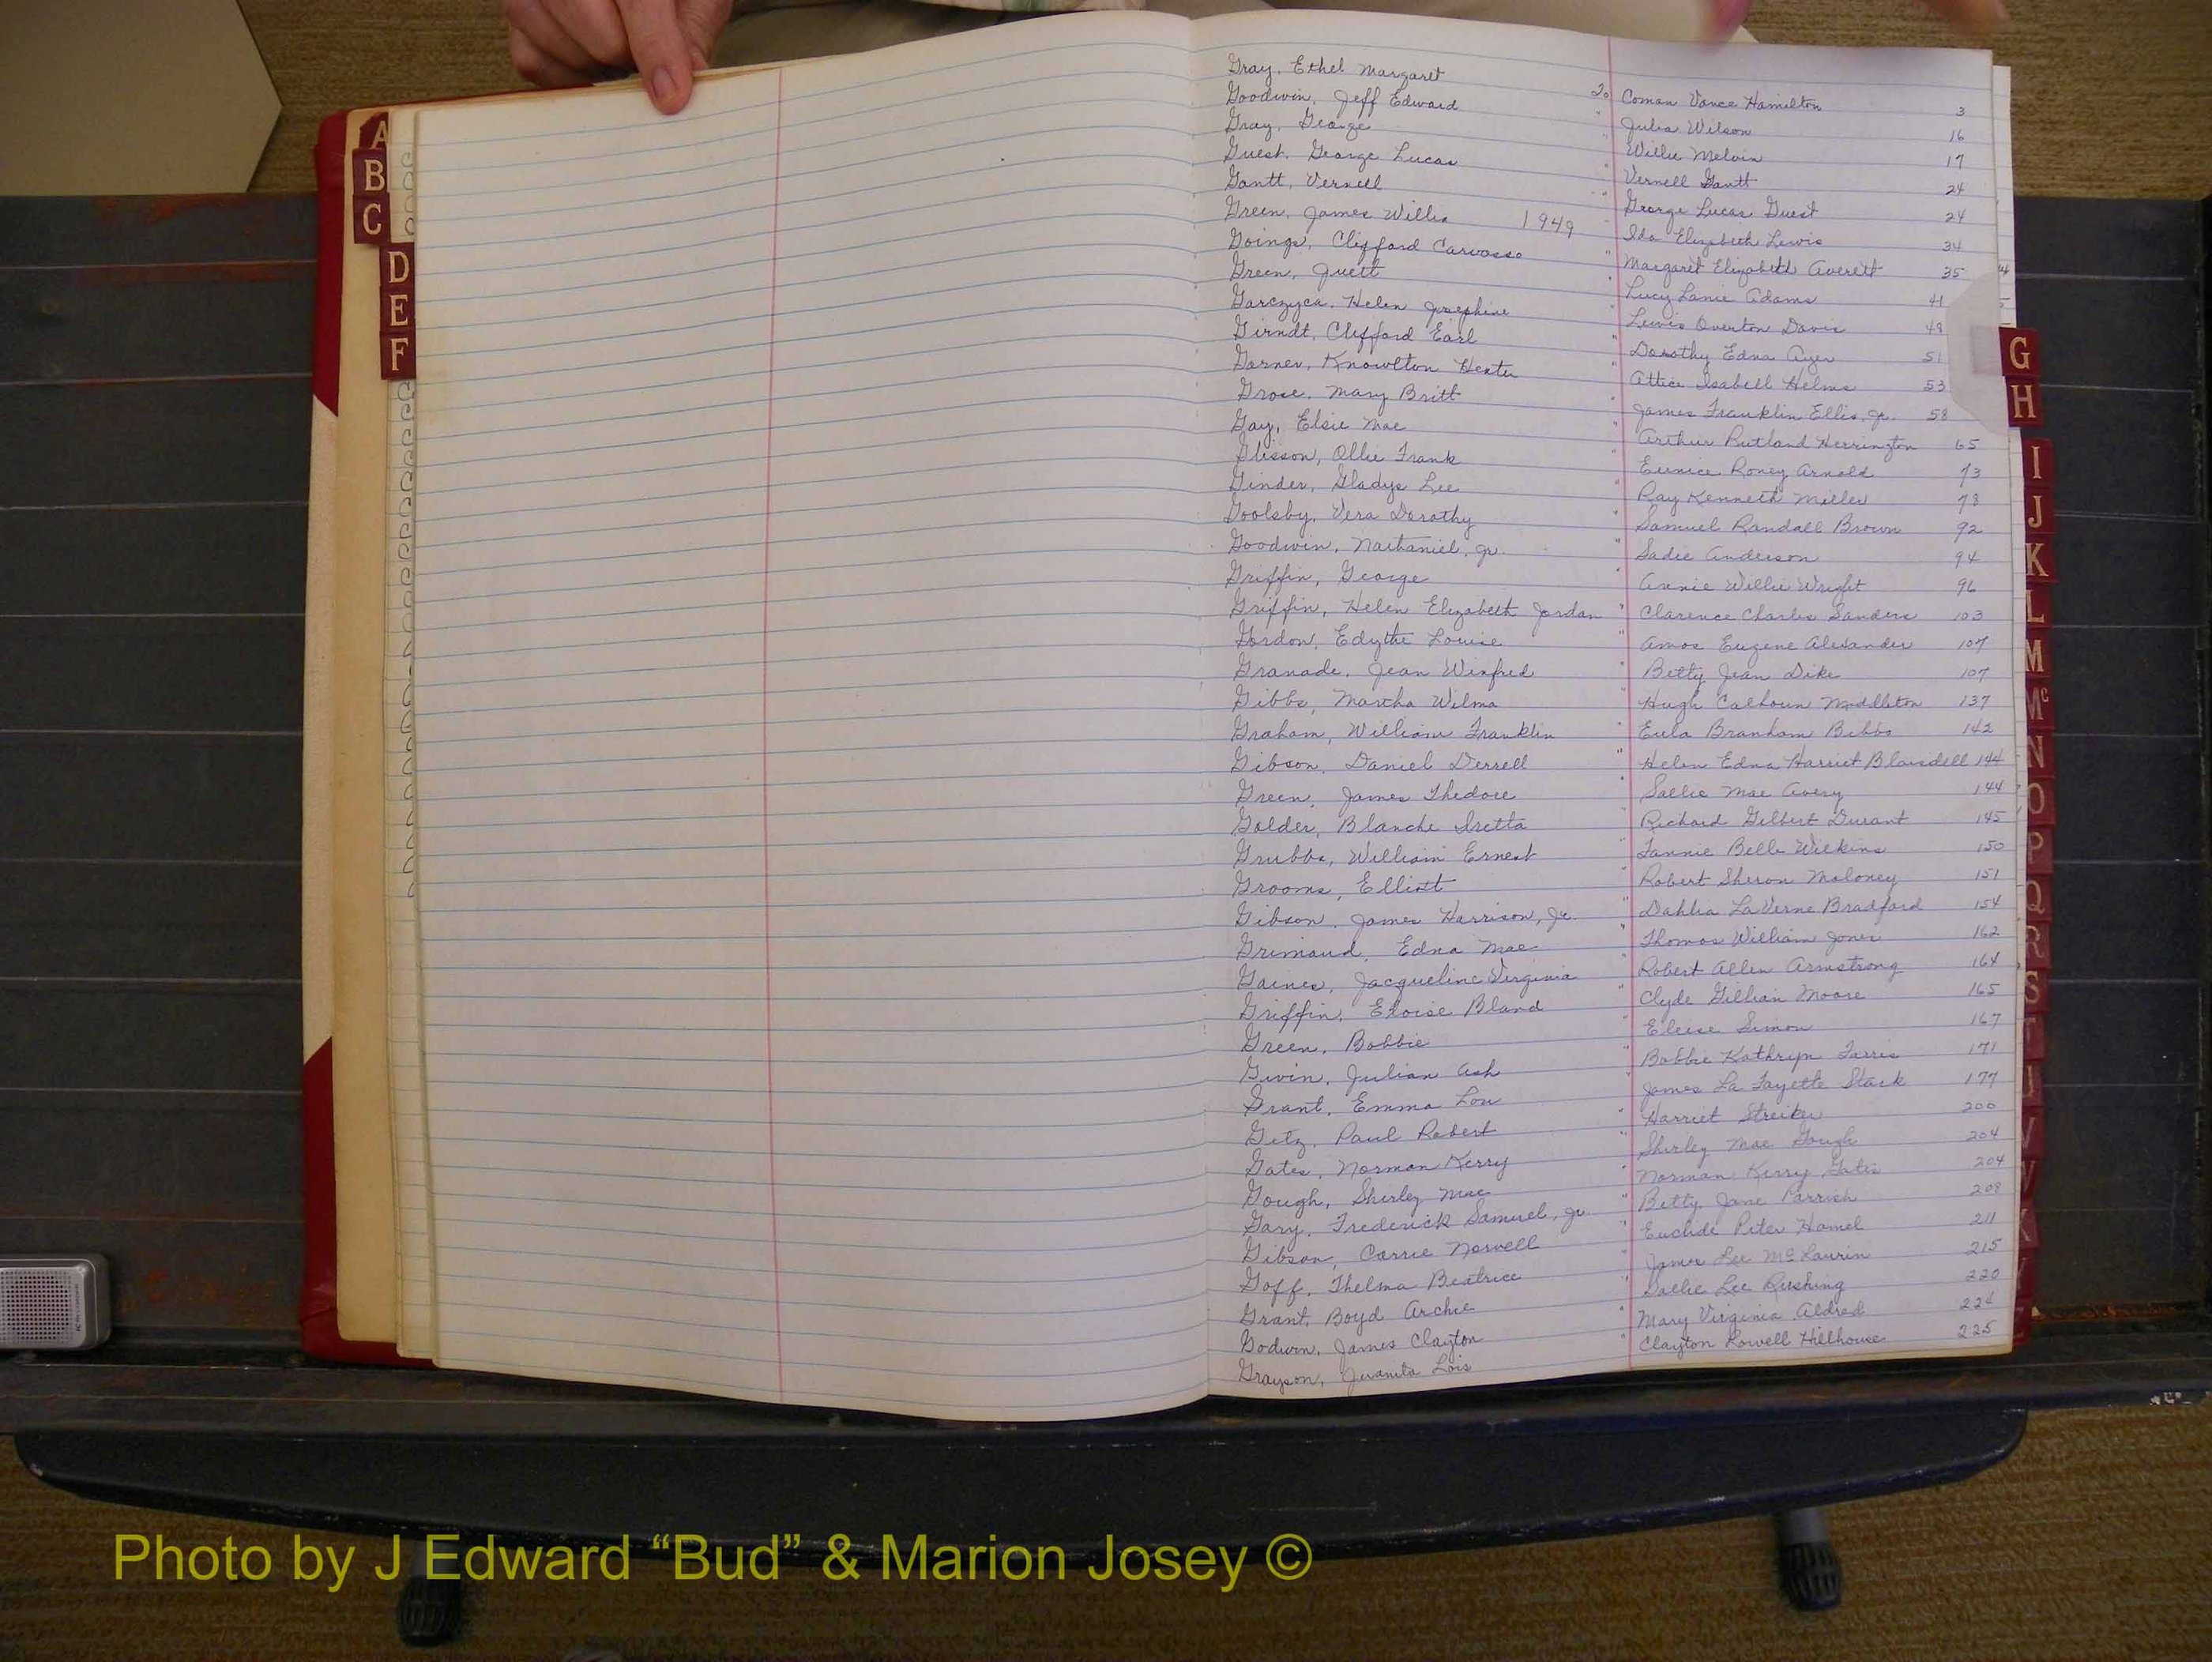 Gray, Ethel Margaret To Coman Vance Hamilton 3
Goodwin, Jeff Edward " Julia Wilson 16
Gray, George " Willie Melvin 17
Guest, George Lucas " Vernell Gantt 24
Gantt, Vernell " George Lucas Guest 24
Green, James Willis 1949 " Ida Elizabeth Lewis 34
Goings, Clifford Carvosso " Margaret Elizabeth Averett 35
Green, Juett " Lucy Lanie Adams 41
Garczyca, Helen Josephine " Lewis Overton Davis 49
Girndt, Clifford Earl " Dorothy Edna Ayer 51
Garner, Knowlton Hester " Attice Isabell Helms 53
Grose, Mary Britt " James Franklin Ellis, Jr. 58
Gay, Elsie Mae " Arthur Rutland Herrington 65
Glisson, Ollie Frank " Eunice Roney Arnold 73
Ginder, Gladys Lee " Ray Kenneth Miller 78
Goolsby, Vera Dorothy " Samuel Randall Brown 92
Goodwin, Nathaniel, Jr. " Sadie Anderson 94
Griffin, George " Annie Willie Wright 96
Griffin, Helen Elizabeth Jordan " Clarence Charles Sanders 103
Gordon, Edythe Louise " Amos Eugene Alexander 107
Granade, Jean Winfred " Betty Jean Dike 107
Gibbs, Martha Wilma " Hugh Calhoun Middleton 137
Graham, William Franklin " Eula Branham Bibbs 142
Gibson, Daniel Derrell " Helen Edna Harriet Blaisdell 144
Green, James Thedore " Sallie Mae Avery 144
Golder, Blanche Iretta " Richard Gilbert Durant 145
Grubbs, William Ernest " Fannie Belle Wilkins 150
Grooms, Elliott " Robert Sheron Moloney 151
Gibson, James Harrison, Jr. " Dahlia LaVerne Bradford 154
Grimaud, Edna Mae " Thomas William Jones 162
Gaines, Jacqueline Virginia " Robert Allen Armstrong 164
Griffin, Eloise Bland " Clyde Gillian Moore 165
Green, Bobbie " Eloise Simon 167
Givin, Julian Ash " Bobbie Kathryn Farris 171
Grant, Emma Lou " James La Fayette Stack 177
Getz, Paul Robert " Harriet Streiker 200
Gates, Norman Kerry " Shirley Mae Gough 204
Gough, Shirley Mae " Norman Kerry Gates 204
Gary, Frederick Samuel, Jr. " Betty Jane Parrish 208
Gibson, Carrie Norvell " Euclide Peter Hamel 211
Goff, Thelma Beatrice " James Lee McLaurin 215
Grant, Boyd Archie " Sallie Lee Rushing 220
Godwin, James Clayton " Mary Virginia Aldred 224
Grayson, Juanita Lois " Clayton Lowell Hillhouse 225
A
B
C
D
E
F
G
H
I
J
K
L
M
Mc
N
O
P
Q
R
S
T
Photo by J Edward “Bud” & Marion Josey ©